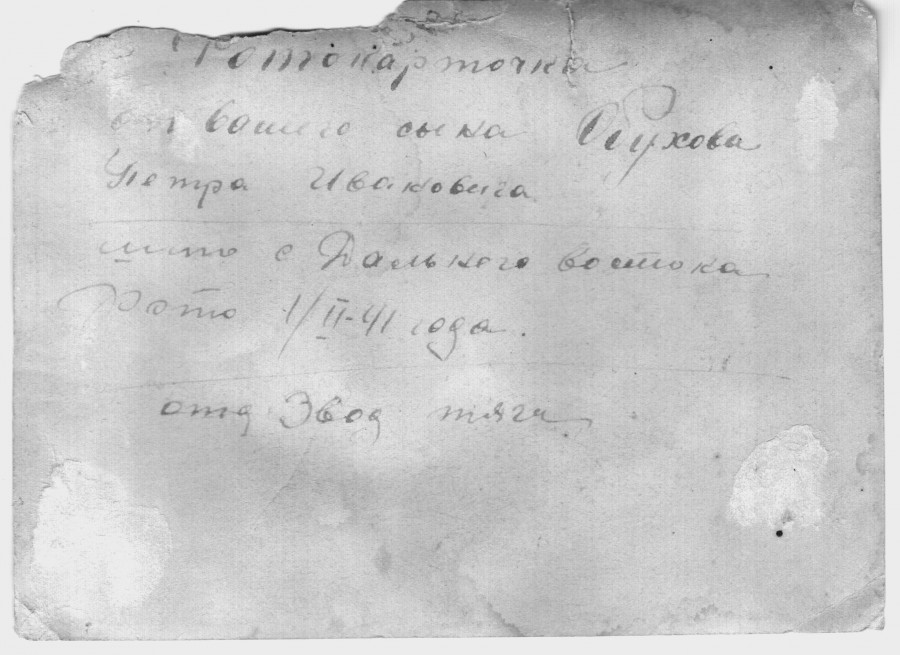 Фотокарточка
от вашего сына Обухова
Петра Ивановича
што с Дального востока
Фото 1/II-41 года.
отд Звод тяги